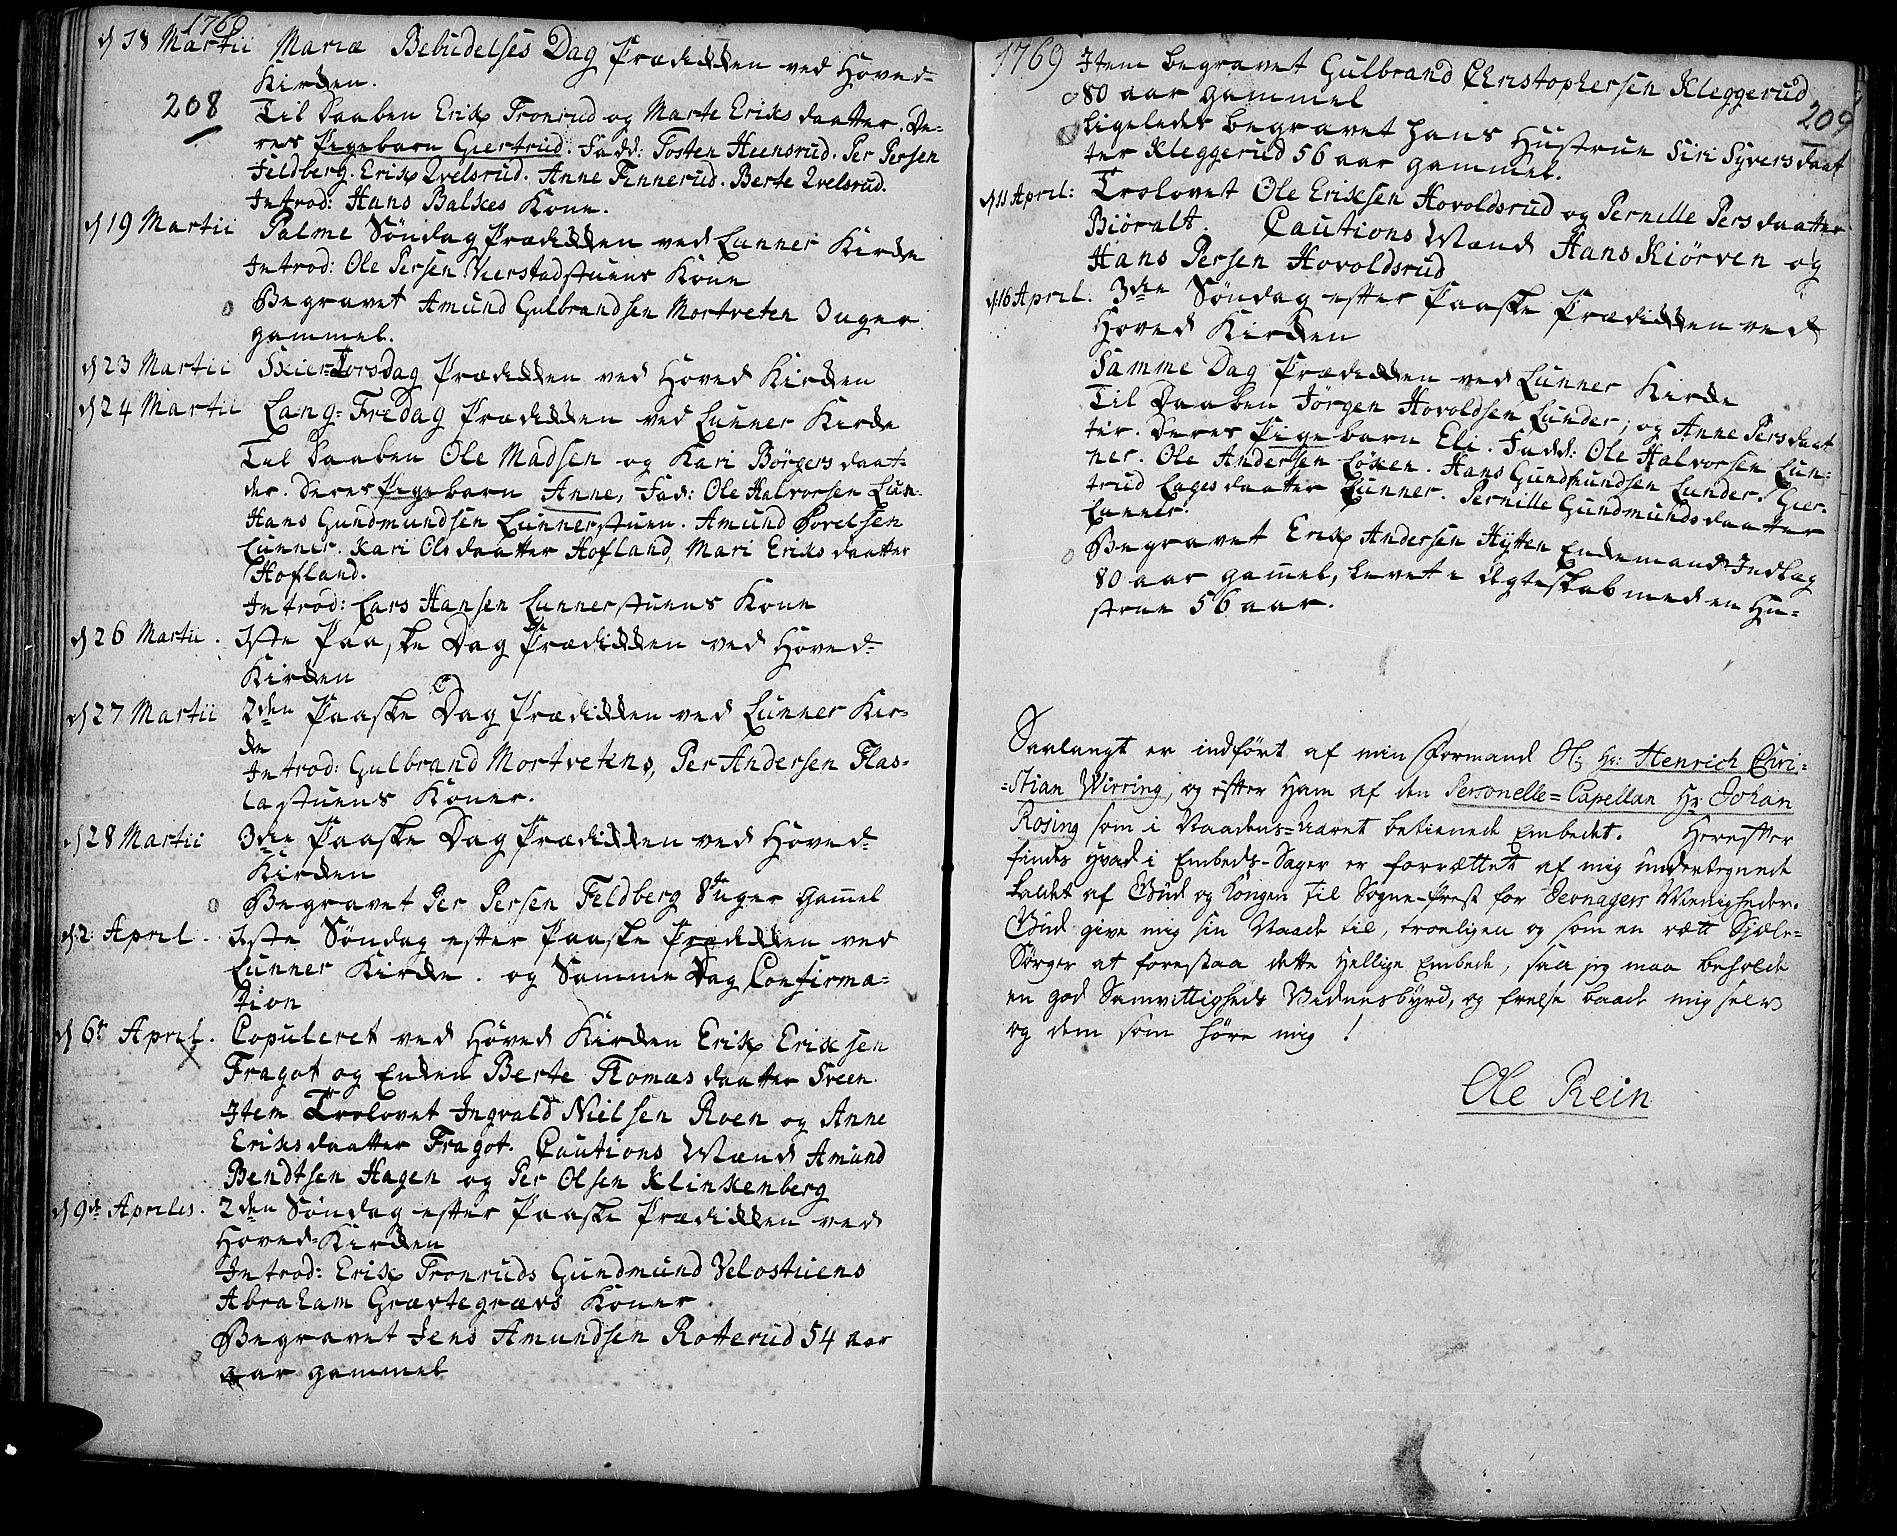 1769
d 18 Martii Mariæ Bebudelses Dag Prædikken ved Hoved-
Kirken.
208
Til Daaben Erik Tronrud og Marte Eriks daatter. De-
res Pigebarn Giertrud. Fadd: Tosten Heensrud. Per Persen
Feldberg. Erik Qvelsrud. Anne Finnerud. Berte Qvelsrud.
Introd: Hans Balkes Kone.
d 19 Martii Palme Søndag Prædikken ved Lunner Kirke
Introd: Ole Persen Kierstadstuens Kone
Begravet Amund Gulbrandsen Mortveten 3 uger
gammel.
d 23 Martii Skier-Torsdag Prædikken ved Hoved Kirken
d 24 Martii Lang-Fredag Prædikken ved Lunner Kirke
Til Daaben Ole Madsen og Kari Børgers daat-
ter. Deres Pigebarn Anne, Fad: Ole Halvorsen Lun-
Hans Gundmundsen Lunnerstuen. Amund Povelsen
Lunner. Kari Ols daatter Hofland, Mari Eriks daatter
Hofland.
Introd: Lars Hansen Lunnerstuens Kone
d 26 Martii. 1ste Paaske Dag Prædikken ved Hoved-
Kirken
d 27 Martii 2den Paaske Dag Prædikken ved Lunner Kir-
ke
Introd: Gulbrand Mortvetens, Per Andersen Flas-
lastuens Koner.
d 28 Martii 3die Paaske Dag Prædikken ved Hoved-
Kirken
Begravet Per Persen Feldberg 8 uger gamel
d 2 April. 1ste Søndag efter Paaske Prædikken ved
Lunner Kirke. og Samme Dag Confirma-
tion
d 6te April. Copuleret ved Hoved Kirken Erik Eriksen
Fragot og Enken Berte Tomas daatter Sveen.
Item Trolovet Ingvald Nielsen Roen og Anne
Eriks daatter Fragot. Cautions Mænd Amund
Bendtsen Hagen og Per Olsen Klinkenberg
d 9de Aprilis. 2den Søndag efter Paaske Prædikken ved
Hoved-Kirken
Introd: Erik Tronruds Gundmund Velostuens
Abraham Grævtegrævs Koner
Begravet Jens Amundsen Rotterud 54 aar
aar gammel
1769 Item begravet Gulbrand Christophersen Kleggerud
80 aar gammel
209
Ligeledes begravet hans Hustrue Siri Syvers daat
ter Kleggerud 56 aar gammel.
d 11 April: Trolovet Ole Eriksen Hovoldsrud og Pernille Pers daatter
Biøralt. Cautions Mænd Hans Kiørven og
Hans Persen Hovoldsrud
d 16 April. 3die Søndag efter Paaske Prædikken ved
Hoved Kirken
Samme Dag Prædikken ved Lunner Kirke
Til Daaben Jørgen Hovoldsen Lunder; og Anne Pers daat
ter. Deres Pigebarn Eli. Fadd: Ole Halvorsen Lun-
ner. Ole Andersen Løken. Hans Gundmundsen Lunder. Gier-
trud Lages daatter Lunner. Pernille Gundmunds daatter
Lunner.
Begravet Erik Andersen Hytten Enkemand Indlag
80 aar gamel, levet i Ægteskab med en Hu-
strue 56 aar.
Saalangt er indført af min Formand S: Hr: Henrich Chri-
-stian Wirring, og efter Ham af den Personelle-Capellan Hr Johan
Rosing som i Naadens-Aaret betiente Embedet. Herefter
findes hvad i Embeds-Sager er forrættet af mig underskrevne
kaldet af Gud og Kongen til Sogne-Præst for Jevnagers Menigheder.
Gud give mig sin Naade til, troeligen og som en rætt Siæle-
Sørger at forestaa dette Hellige Embede, saa jeg maa beholde
en god Samvittigheds Vidnesbyrd, og frelse baade mig selv
og dem som høre mig!
Ole Rein